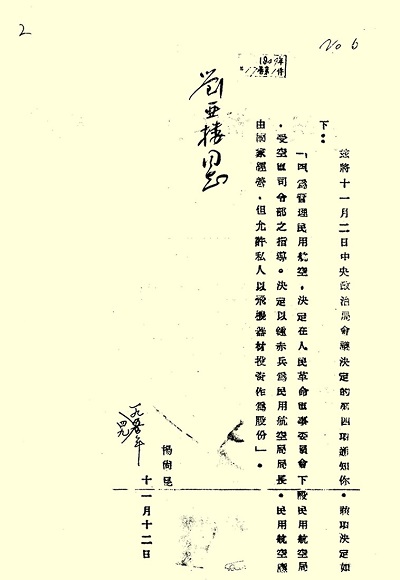 2
No 6
劉亞樓同志
茲將十一月二日中央政治局會議決定的第四項通知你。該項決定如
下:
「四、為管理民用航空,決定在人民革命軍事委員會下設民用航空局
,受空軍司令部之指導。決定以鍾赤兵為民用航空局局長。民用航空應
由國家經營,但允許私人以飛機器材投資作為股份」。
楊尚昆
十一月十二日